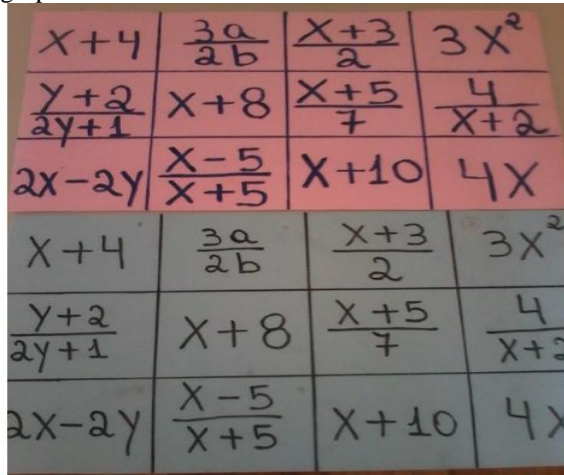 x+4 3a/2b x+3/2 3x²
y+2/2y+1 x+8 x+5/7 4/x+2
2x-2y x-5/x+5 x+10 4x
x+4 3a/2b x+3/2 3x²
y+2/2y+1 x+8 x+5/7 4/x+2
2x-2y x-5/x+5 x+10 4x